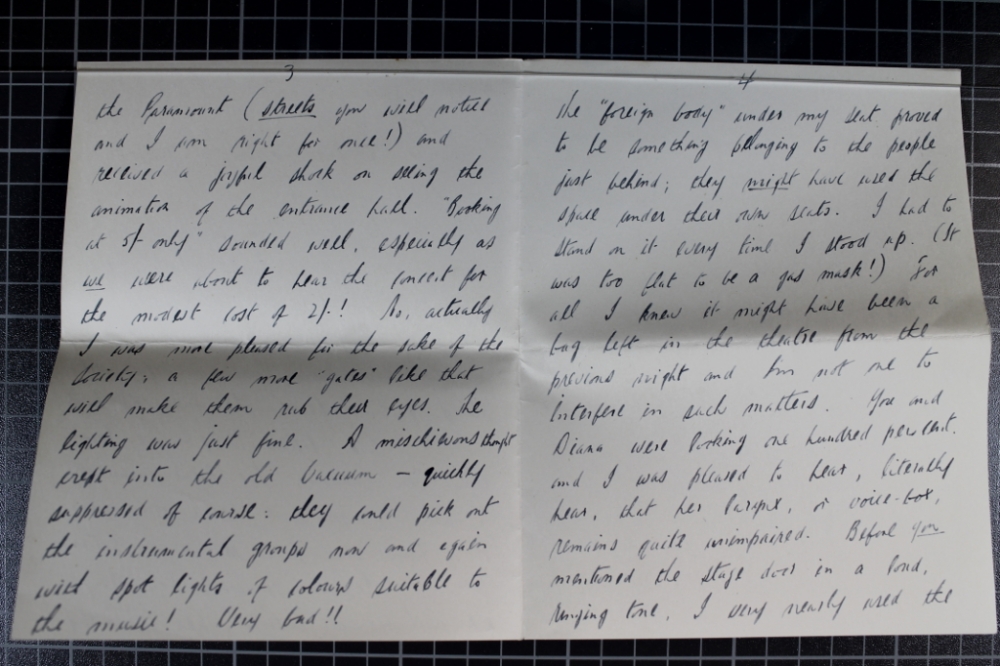 3
the Paramount (streets you will notice
and I am right for once!) and
received a joyful shock on seeing the
animation of the entrance hall. "Booking
at 5/- only" sounded well, especially as
we were about to hear the concert for
the modest cost of 2/-! No, actually
I was more pleased for the sake of the
Society: a few more "gates" like that
will make them rub their eyes. The
lighting was just fine. A mischievous thought
crept into the old vacuum – quickly
suppressed of course: they could pick out
the instrumental groups now and again
with spot lights of colours suitable to
the music! Very bad!!
4
The "foreign body" under my seat proved
to be something belonging to the people
just behind; they might have used the
space under their own seats. I had to
stand on it every time I stood up. (It
was too flat to be a gas mask!) For
all I knew it might have been a
bag left in the theatre from the
previous night and I'm not one to
interfere in such matters. You and
Diana were looking one hundred per cent.
and I was pleased to hear, literally
hear, that her larynx, or voice-box,
remains quite unimpaired. Before you
mentioned the stage door in a loud,
ringing tone, I very nearly used the